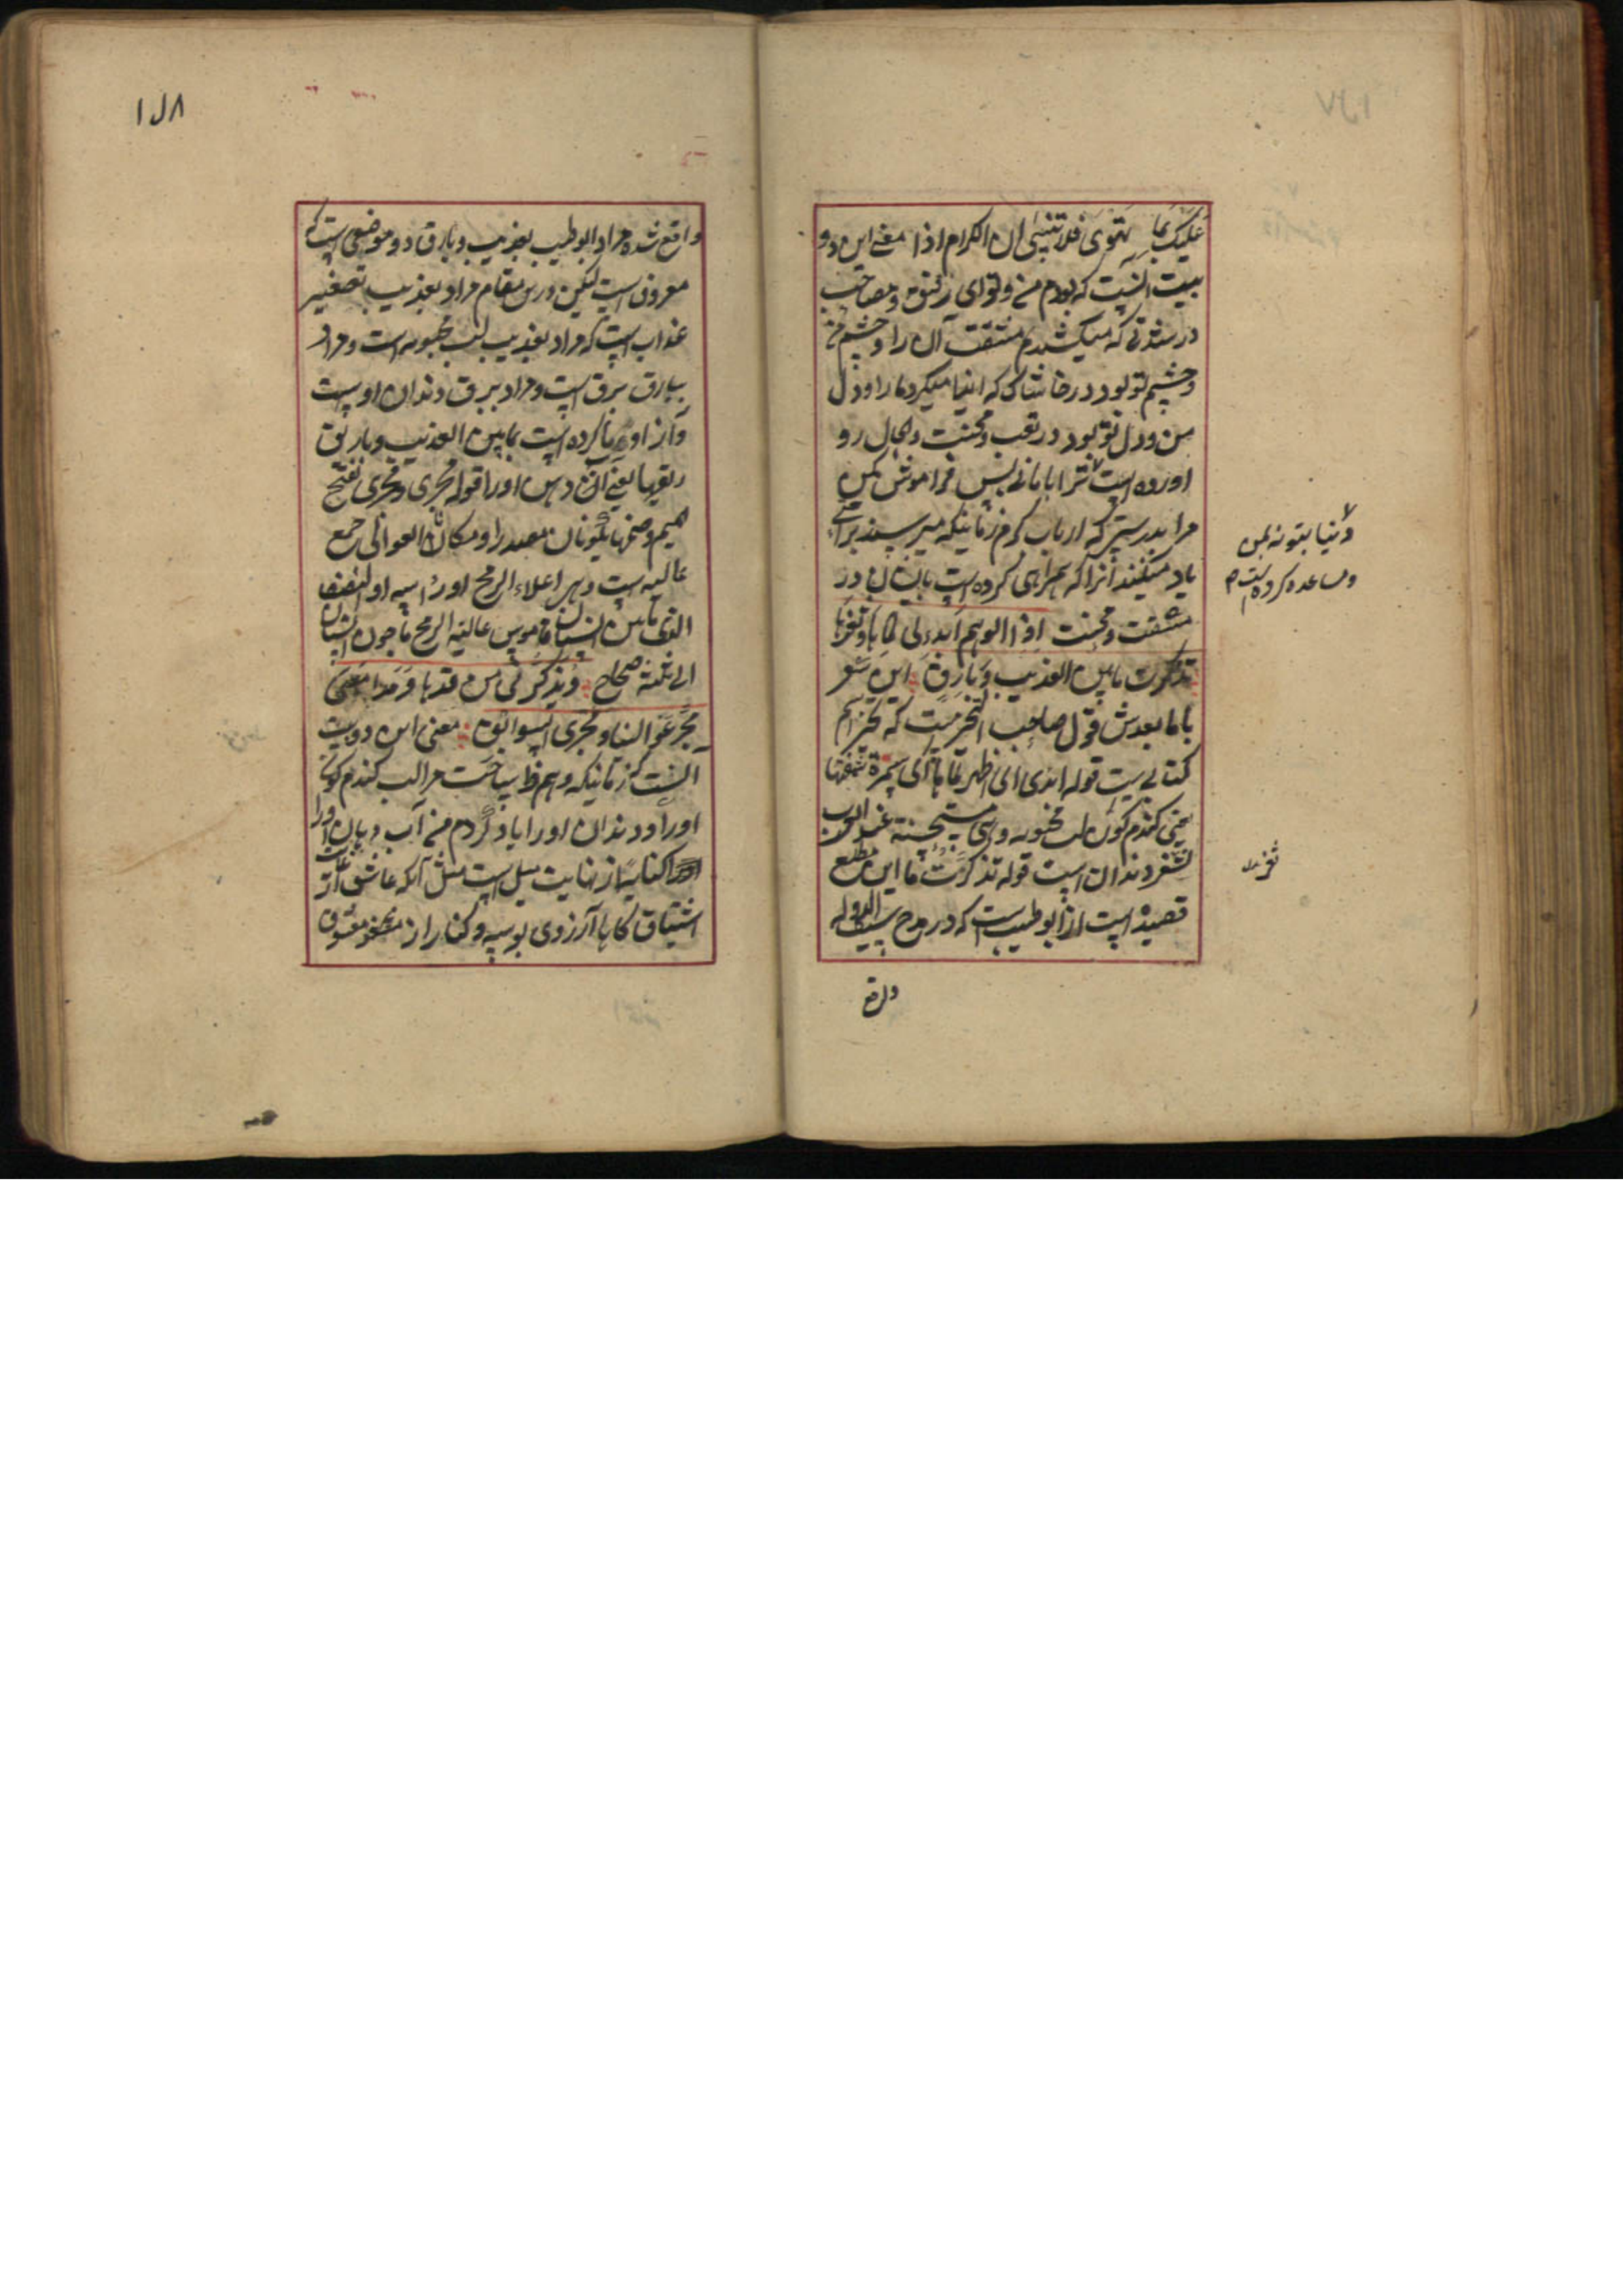 علیک بما تهوی فلا تنسنی ان الکرام اذا معنی این دو
بیت انست که بودم من و تو ای رفیق و مصاحب
در شدتی که میکشیدیم مشقت آن را و چشم من
و چشم تو بود در خاشاکی که ایذا میکرد ما را و دل
من و دل تو بود در تعب و محنت و الحال رو
اورده است ترا با مانی پس فراموش مکن
مرا بدرستی که ارباب کرم زمانیکه میرسند براحتی
یاد میکنند انرا که همراهی کرده است بایشان در
مشقت و محنت اذا الوهم ابدی لی لماها و ثغرها
تذکرت ما بین العذیب و بارق این شعر
با ما بعدش قول صاحب التحریرست که تحریر اسم
کتابیست قوله ابدی ای اظهر لماها ای سمرة شفتها
یعنی کندم کون لب محبوبه و هی مستحسنة عند العرب
لثغر دندان است قوله تذکرت ما این مطلع
قصیده است از ابو طیب است که در مدح سیف الدوله
واقع
و دنیا بتو نه بمن
و مساعده کرده است م
ثغر
۱۸۱
واقع شده مراد ابو طیب بعذیب و بارق دو موضعی است که
معروف است لیکن درین مقام مراد بعذیب تصغیر
عذاب است که مراد بعذیب لب محبوبه است و مراد
ببارق برق است و مراد ببرق دندان اوست
و از او کرده است بما بین العذیب و بارق
ریقها یعنی آب دهن او را قوله مجری و مجری بفتح
میم و ضمها یکونان مصدرا و مکانا العوالی جمع
عالیه است و هی اعلاء الرمح او راسه او النصف
الذی ما بین السنان قاموس عالیة الرمح ما دون السنان
الی ثلثه صحاح و یذکرنی من قدها و مدامعی
مجر عوالینا و مجری السوابق معنی این دو بیت
انست که زمانیکه وهم ظاهر ساخت مرا لب کندم کون
او را و دندان او را یاد کردم من آب دهان او را
کنایه از نهایت میل است مثل آنکه عاشق از غایت
اشتیاق کاها آرزوی بوسه و کنار از معشوق